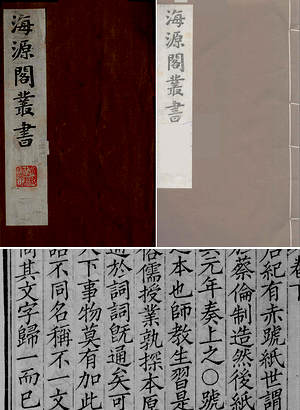 海源閣叢書
海源閣叢書
卷下
后紀有赤號紙世謂
蔡倫制造然後紙
元年奏上之○號
本也師教生習是
俗儒授業孰探本原
於詞詞旣通矣可
下事物莫有加此
不同名稱不一文
其文字歸一而已